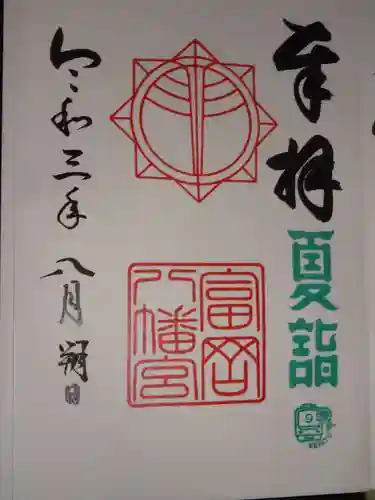 奉拝
夏詣
9
富岡
八幡宮
令和三年
八月朔日